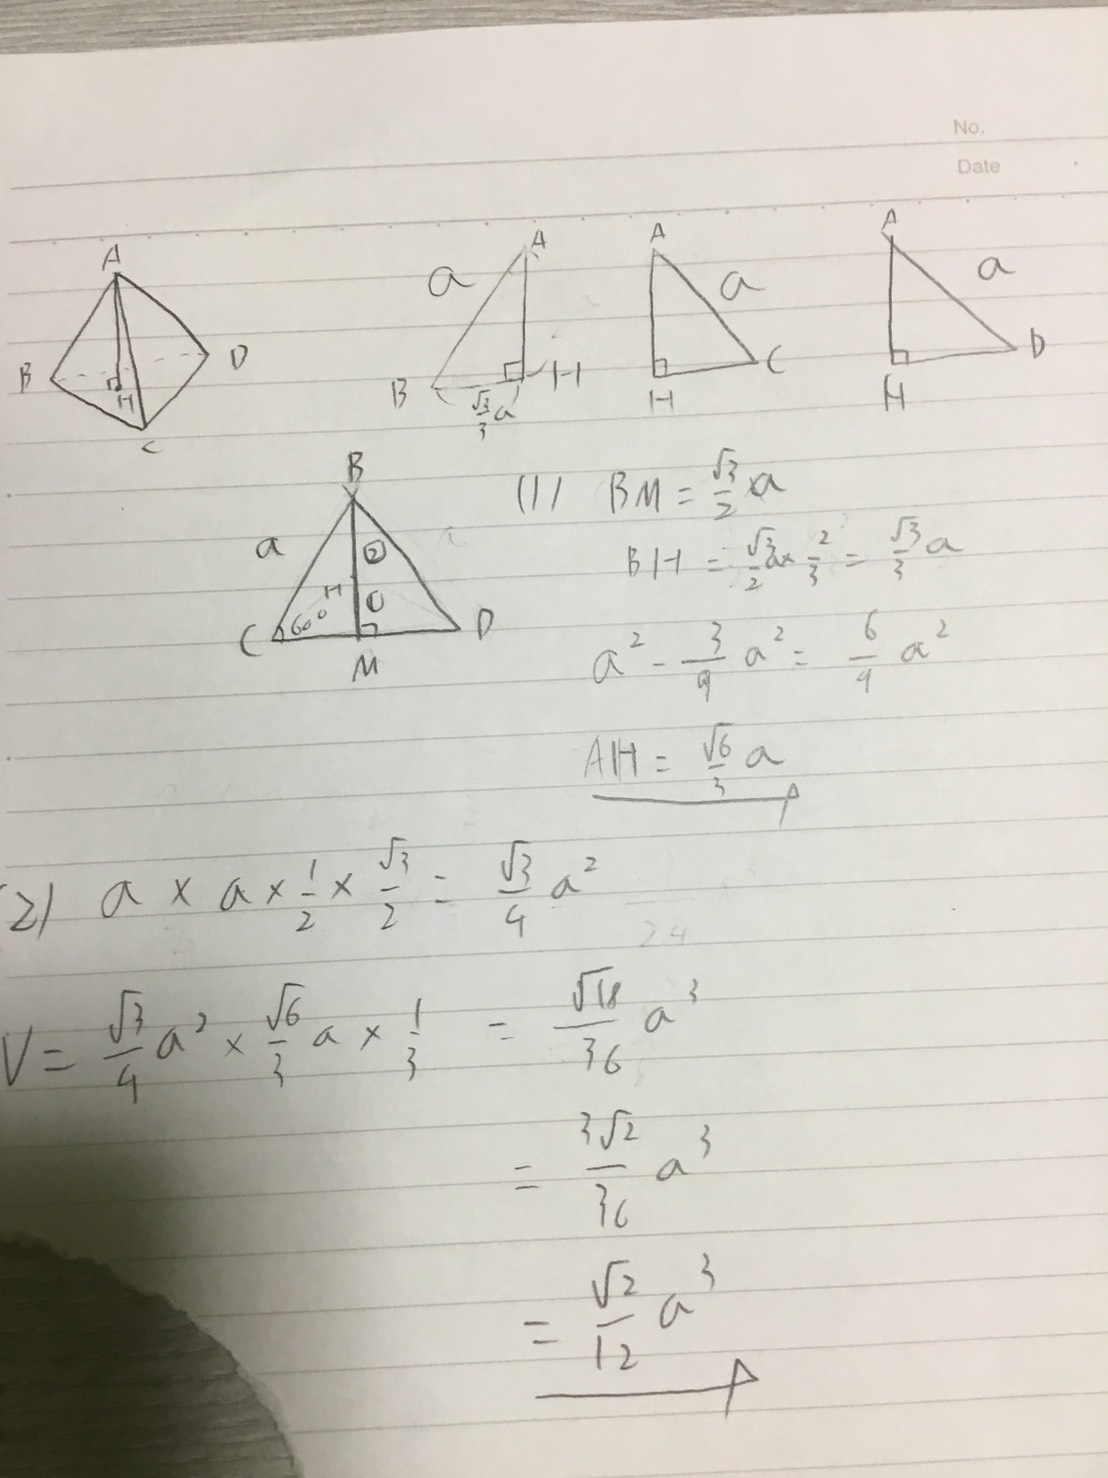 No.
Date
A
B
D
H
C
A
a
B
H
√3/3 a
A
a
H
C
A
a
H
D
B
a
②
H
①
C
60°
D
M
(1) BM = √3/2 × a
BH = √3/2 a × 2/3 = √3/3 a
a² - 3/9 a² = 6/9 a²
AH = √6/3 a
(2) a × a × 1/2 × √3/2 = √3/4 a²
V = √3/4 a² × √6/3 a × 1/3 = √18/36 a³
= 3√2/36 a³
= √2/12 a³